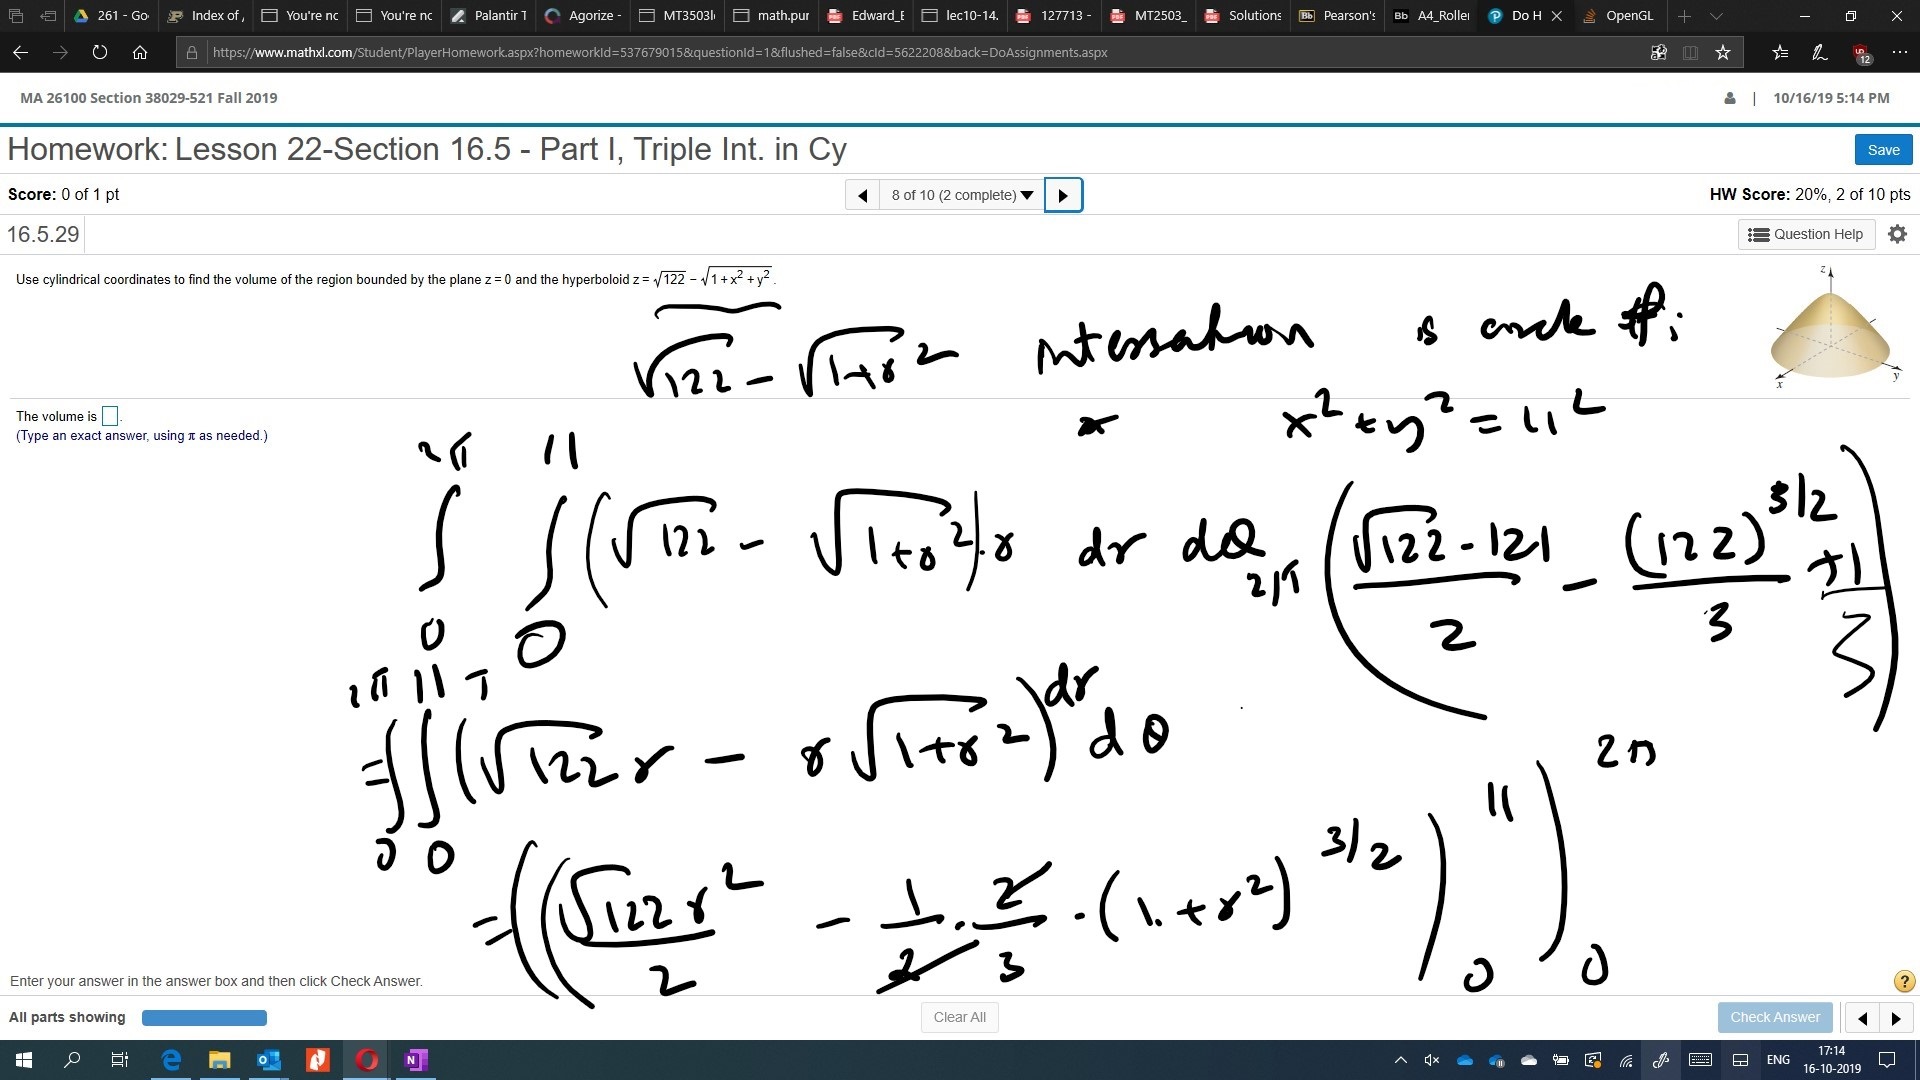 261 - Go
Index of ,
You're nc
You're nc
Palantir T
Agorize -
MT3503l
math.pur
Edward_E
lec10-14.
127713 -
MT2503_
Solutions
Pearson's
A4_Roller
Do H
OpenGL
https://www.mathxl.com/Student/PlayerHomework.aspx?homeworkId=537679015&questionId=1&flushed=false&cId=5622208&back=DoAssignments.aspx
12
MA 26100 Section 38029-521 Fall 2019
| 10/16/19 5:14 PM
Homework: Lesson 22-Section 16.5 - Part I, Triple Int. in Cy
Save
Score: 0 of 1 pt
8 of 10 (2 complete)
HW Score: 20%, 2 of 10 pts
16.5.29
Question Help
Use cylindrical coordinates to find the volume of the region bounded by the plane z = 0 and the hyperboloid z = √122 − √1 + x² + y² .
z
x
y
√122 − √1+r²
is circle
x² + y² = 11²
The volume is .
(Type an exact answer, using π as needed.)
2π 11
∫ ∫ (√122 − √1+r²)·r dr dθ
0 0
2π (√122·121/2 − (122)^3/2/3 + 1/3)
2π 11
= ∫ ∫ (√122 r − r √1+r²) dr dθ
0 0
= ((√122 r²/2 − 1/2 · 2/3 · (1+r²)^3/2) 11 0) 2π 0
Enter your answer in the answer box and then click Check Answer.
?
All parts showing
Clear All
Check Answer
ENG
17:14
16-10-2019